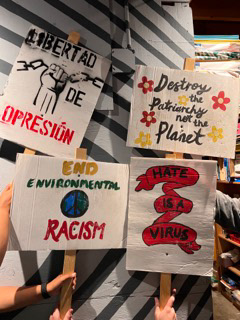 LIBERTAD
DE
OPRESIÓN
Destroy
the
Patriarchy
not the
Planet
END
ENVIRONMENTAL
RACISM
HATE
IS A
VIRUS